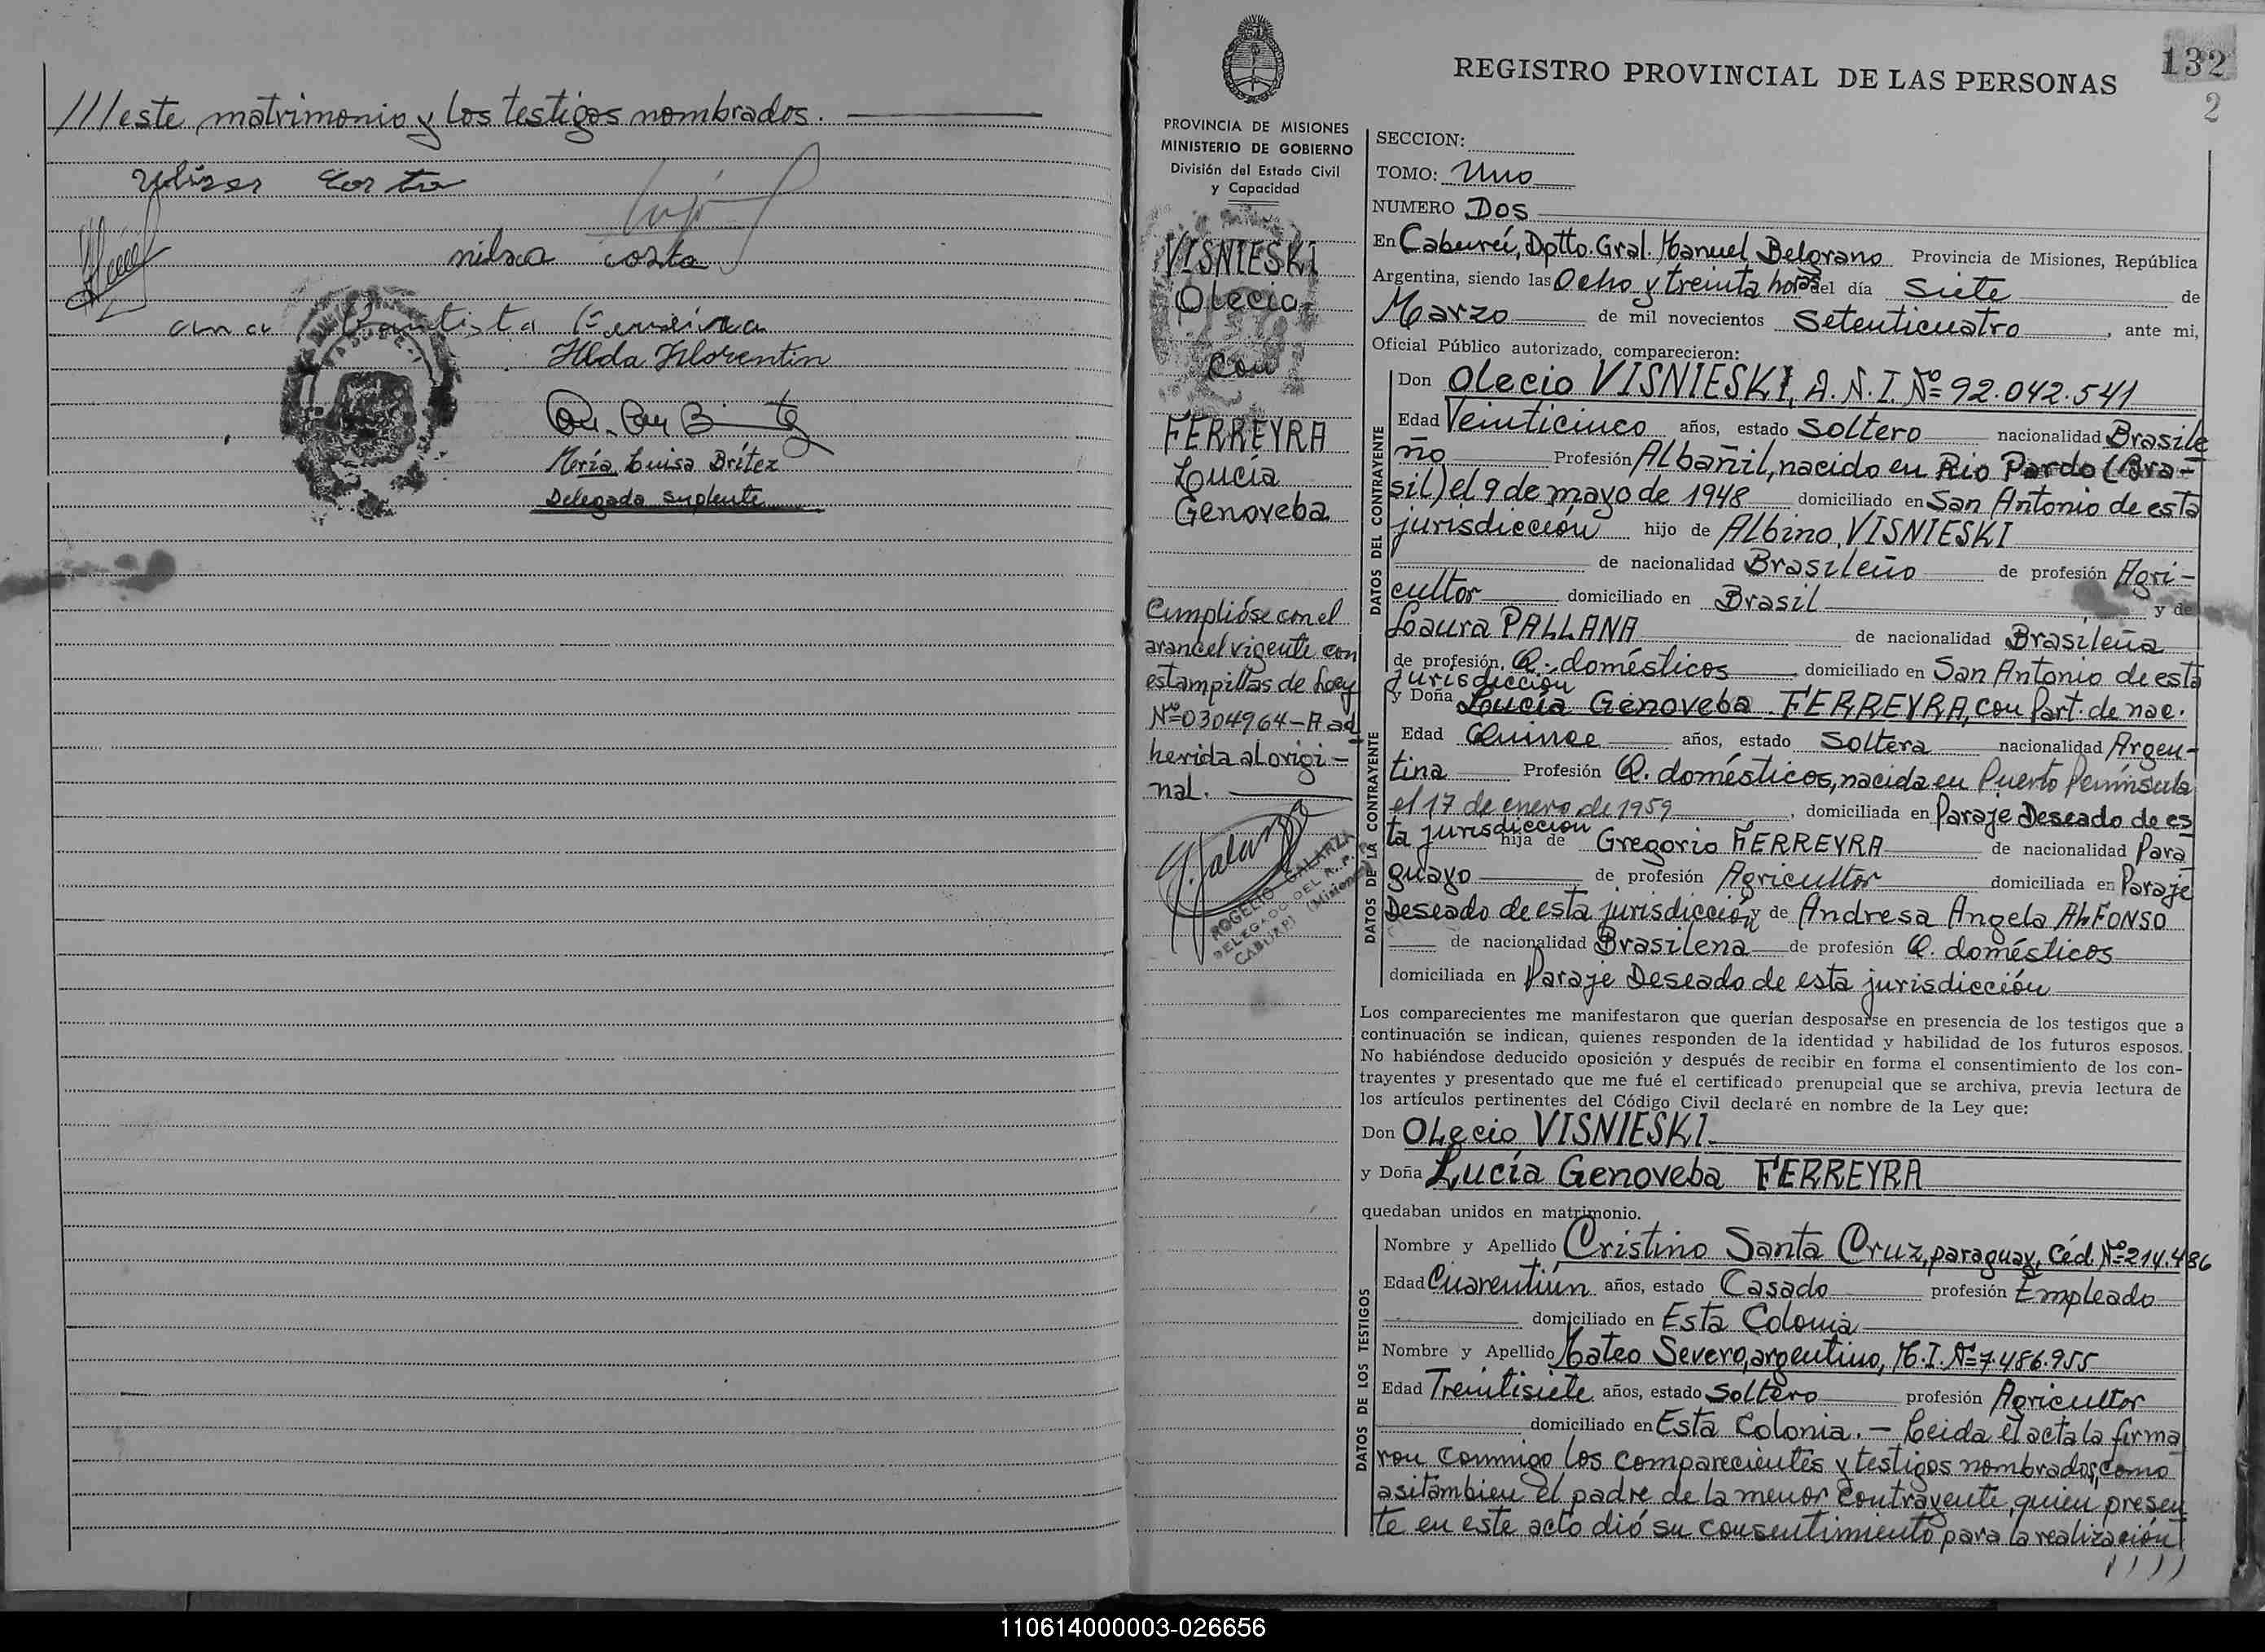 ///este matrimonio y los testigos nombrados.
Ulises Costa
nilsa costa
ana Bautista Ferreira
Ilda Florentin
María Luisa Brítez
Delegada suplente
132
2
REGISTRO PROVINCIAL DE LAS PERSONAS
PROVINCIA DE MISIONES
MINISTERIO DE GOBIERNO
División del Estado Civil
y Capacidad
VISNIESKI
Olecio
Con
FERREYRA
Lucía
Genoveba
Cumplióse con el
arancel vigente con
estampillas de Ley
Nº=0304964-A ad
herida al origi-
nal.
ROGELIO GALARZA
DELEGADO DEL R.P.P.
CABUREI (Misiones)
SECCION:
TOMO: Uno
NUMERO Dos
En Cabureí, Dptto. Gral. Manuel Belgrano Provincia de Misiones, República
Argentina, siendo las Ocho y treinta horas del día Siete de
Marzo de mil novecientos Setenticuatro, ante mi,
Oficial Público autorizado, comparecieron:
DATOS DEL CONTRAYENTE
Don Olecio VISNIESKI, D.N.I. Nº=92.042.541
Edad Veinticinco años, estado Soltero nacionalidad Brasile
ño Profesión Albañil, nacido en Rio Pardo (Bra-
sil) el 9 de mayo de 1948 domiciliado en San Antonio de esta
jurisdicción hijo de Albino VISNIESKI
de nacionalidad Brasileño de profesión Agri-
cultor domiciliado en Brasil y de
Laura PALLANA de nacionalidad Brasileña
de profesión Q. domésticos domiciliado en San Antonio de esta
jurisdicción
DATOS DE LA CONTRAYENTE
y Doña Lucía Genoveba FERREYRA, con Part. de nac.
Edad Quince años, estado Soltera nacionalidad Argen-
tina Profesión Q. domésticos, nacida en Puerto Península
el 17 de enero de 1959, domiciliada en Paraje Deseado de es
ta jurisdicción hija de Gregorio FERREYRA de nacionalidad Para
guayo de profesión Agricultor domiciliada en Paraje
Deseado de esta jurisdicción y de Andresa Angela ALFONSO
de nacionalidad Brasilena de profesión Q. domésticos
domiciliada en Paraje Deseado de esta jurisdicción
Los comparecientes me manifestaron que querían desposarse en presencia de los testigos que a
continuación se indican, quienes responden de la identidad y habilidad de los futuros esposos.
No habiéndose deducido oposición y después de recibir en forma el consentimiento de los con-
trayentes y presentado que me fué el certificado prenupcial que se archiva, previa lectura de
los artículos pertinentes del Código Civil declaré en nombre de la Ley que:
Don OLecio VISNIESKI
y Doña Lucía Genoveba FERREYRA
quedaban unidos en matrimonio.
DATOS DE LOS TESTIGOS
Nombre y Apellido Cristino Santa Cruz, paraguay, Céd. Nº=214.486
Edad Cuarentiún años, estado Casado profesión Empleado
domiciliado en Esta Colonia
Nombre y Apellido Mateo Severo, argentino, M.I. Nº=7.486.955
Edad Treintisiete años, estado Soltero profesión Agricultor
domiciliado en Esta Colonia. - Leida el acta la firma
ron conmigo los comparecientes y testigos nombrados, como
asi tambien el padre de la menor contrayente, quien presen
te en este acto dió su consentimiento para la realización
////
110614000003-026656